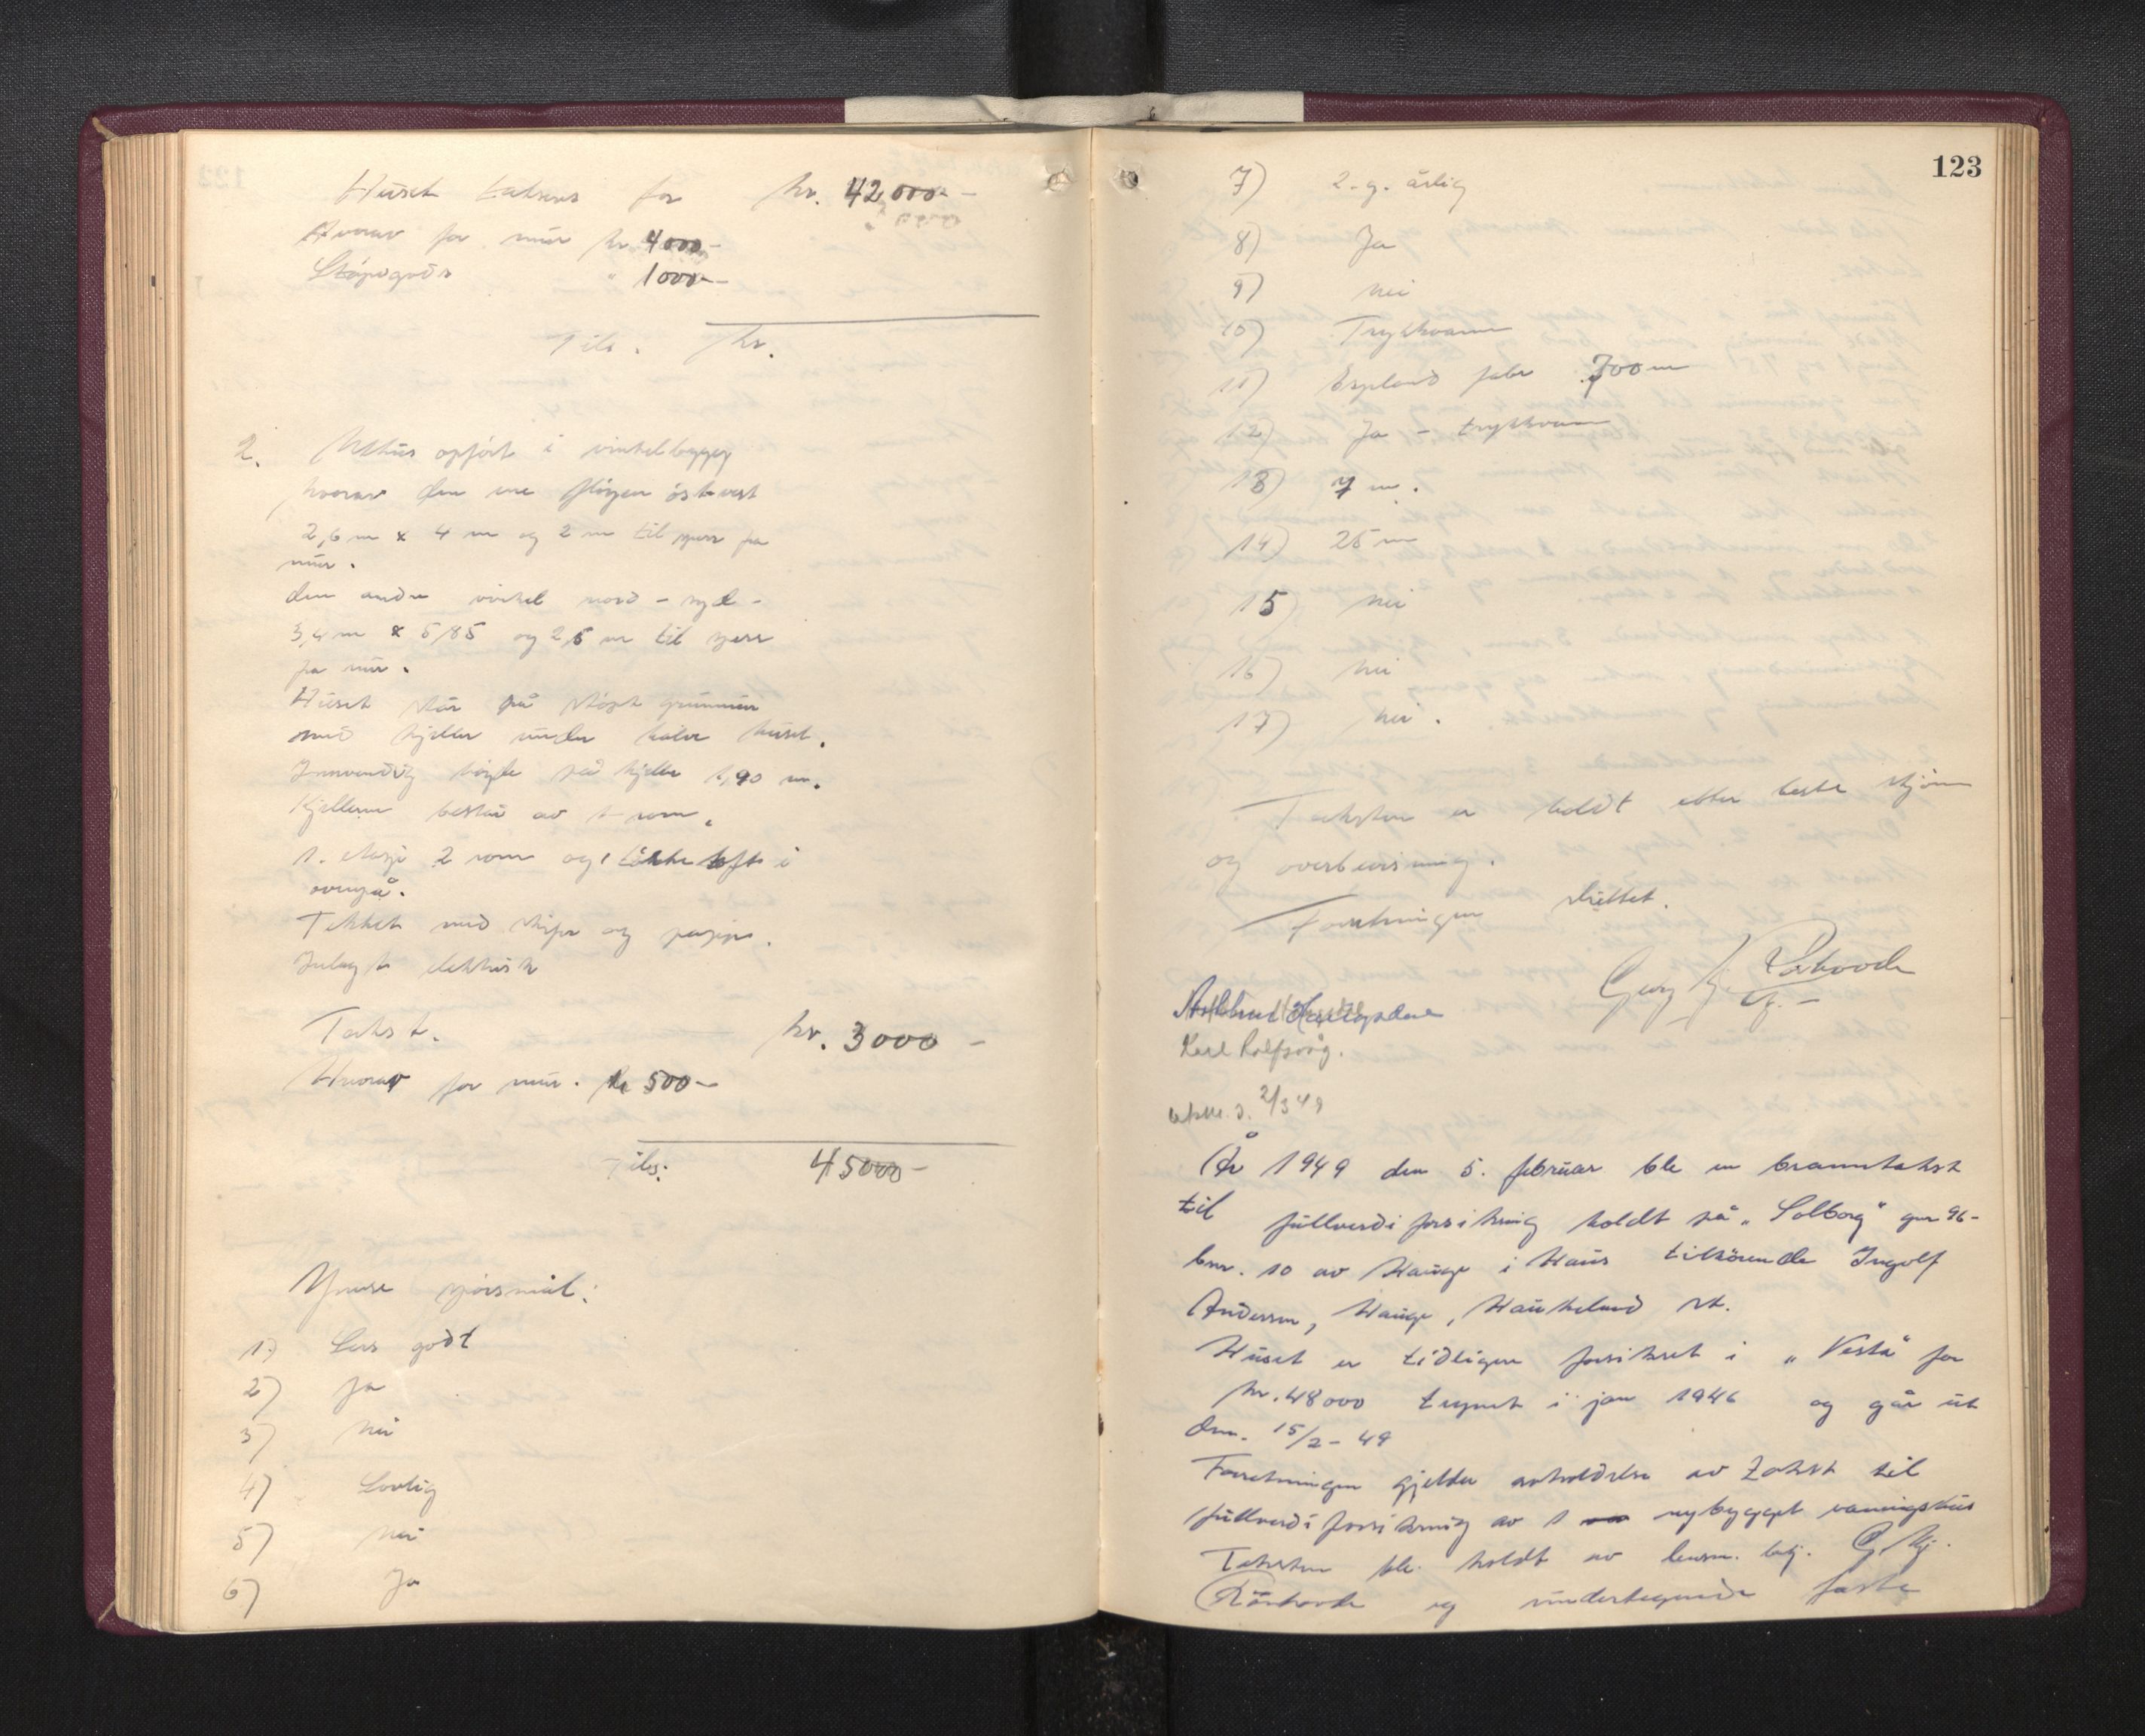 Huset takseres for kr. 42000.-
Hvorav for mur kr 4000.-
Støpegods " 1000.-
Tils. kr.
2. Uthus opført i vinkelbygg
hvorav den ene fløyen øst-vest
2,6 m x 4 m og 2 m til sperr fra
mur.
den andre vinkel nord - syd -
3,4 m x 5,85 og 2,5 m til sperr
fra mur.
Huset står på støpt grunnmur
med kjeller under halve huset.
Innvendig høyde på kjeller 1,90 m.
Kjelleren består av 1 rom.
1. etasje 2 rom og
Tekket med skifer og papp.
Inlagt elektrisk
Takst. kr. 3000 -
Hvorav for mur. kr 500-
Tils: 45000-
Ymse spørsmål:
1) Lers godt
2) Ja
3) Nei
4) Lovlig
5) Nei
6) Ja
123
7) 2. g. årlig
8) Ja
9) Nei
10) Trykkvann
11) Espeland fabr 700 m
12) Ja - trykkvann
13) 7 m.
14) 25 m
15) Nei
16) Nei
17) Nei.
Taksten er holdt etter beste skjønn
og overbevisning.
Forretningen sluttet.
Georg Kj.
Karl Rolfsvåg.
2/3 49
År 1949 den 5. februar ble en branntakst
til fullverdiforsikring holdt på "Solborg" gnr 96-
bnr. 10 av Hauge i Haus tilhørende Ingolf
Andersen, Hauge, Haukeland st.
Huset er tidligere forsikret i "Vesta" for
kr. 48000 tegnet i jan 1946 og går ut
den. 15/2 - 49
Forretningen gjelder avholdelse av takst til
fullverdiforsikring av 1 nybygget våningshus
Taksten ble holdt av lensm. btj. G. Kj.
og undertegnede faste